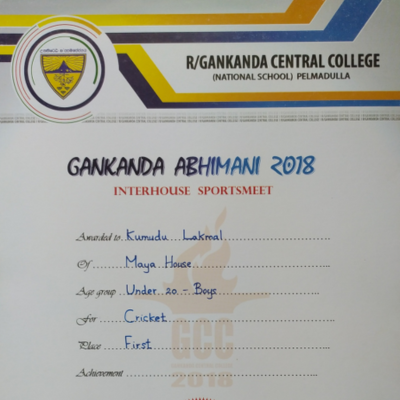 R/GANKANDA CENTRAL COLLEGE
(NATIONAL SCHOOL) PELMADULLA
GANKANDA ABHIMANI 2018
INTERHOUSE SPORTSMEET
Awarded to Kumudu Lakmal
Of Maya House
Age group Under 20 - Boys
For Cricket
Place First
Achievement
GCC
2018